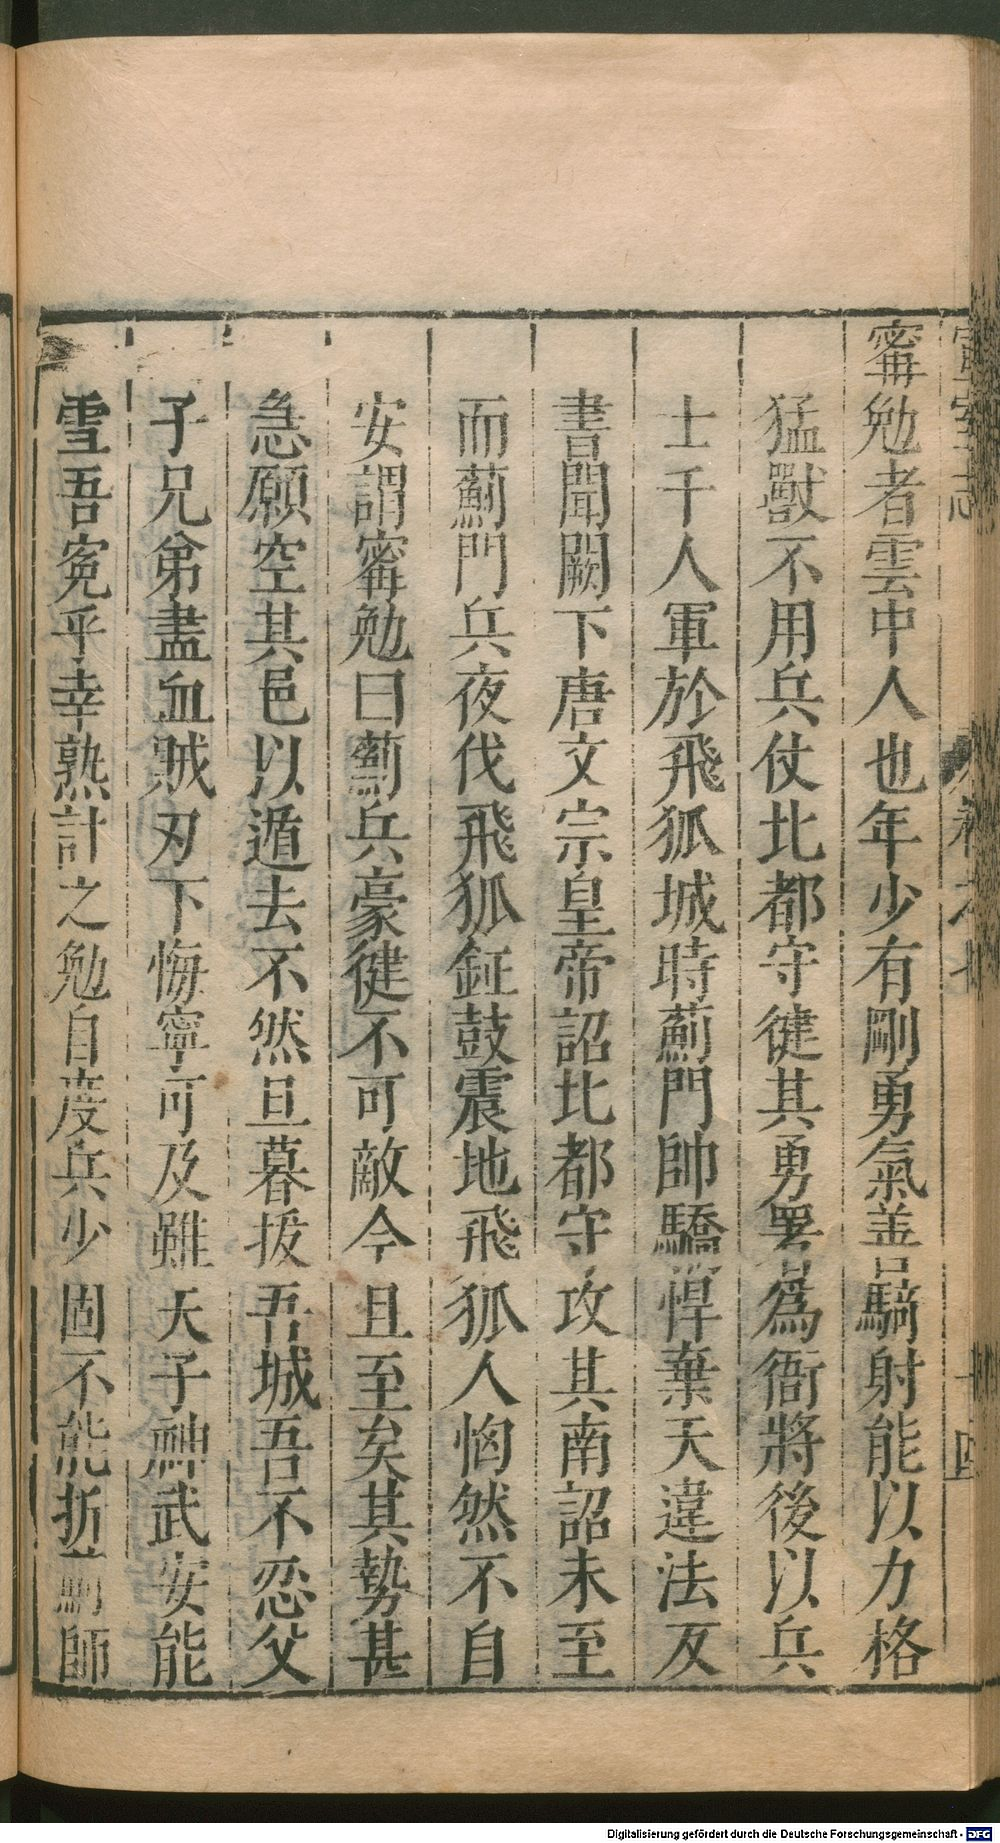 甯勉者雲中人也年少有剛勇氣善騎射能以力格
猛獸不用兵仗北都守徤其勇署爲衙將後以兵
士千人軍於飛狐城時薊門帥驕悍棄天違法反
書聞闕下唐文宗皇帝詔北都守攻其南詔未至
而薊門兵夜伐飛狐鉦鼓震地飛狐人恟然不自
安謂甯勉曰薊兵豪徤不可敵今且至矣其勢甚
急願空其邑以遁去不然旦暮拔吾城吾不忍父
子兄弟盡血賊刃下悔寧可及雖天子神武安能
雪吾寃乎幸熟計之勉自度兵少固不能折薊師
Digitalisierung gefördert durch die Deutsche Forschungsgemeinschaft - DFG